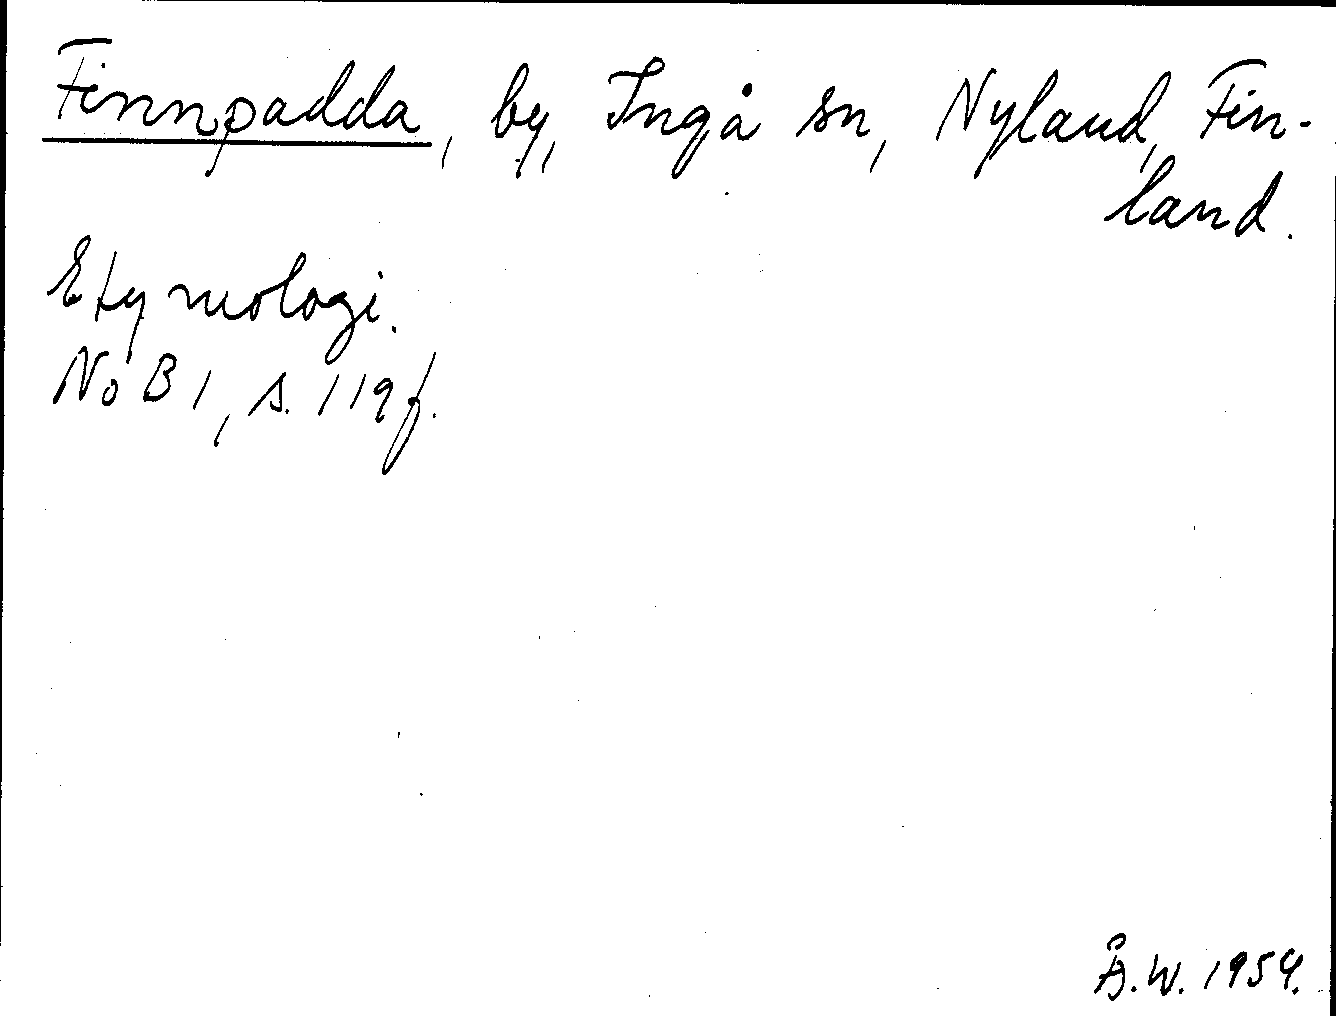 Finnpadda, by, Ingå sn, Nyland, Fin-
land.
Etymologi.
NoB 1, s. 119 f.
Å.W. 1954.